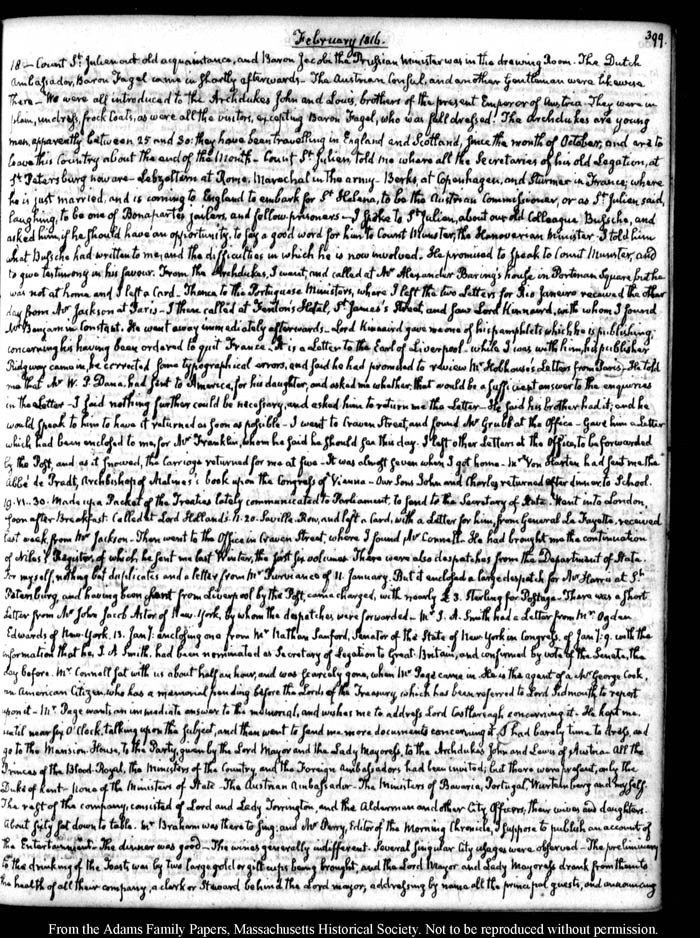 February 1816.
399.
18.— Count St. Julien our old acquaintance, and Baron Jacobi the Prussian Minister was in the drawing Room — The Dutch
Ambassador, Baron Fagel came in shortly afterwards — The Austrian Consul, and another Gentleman were likewise
there — We were all introduced to the Archdukes John and Louis, brothers of the present Emperor of Austria — They were in
plain, undress, frock Coats, as were all the visitors, excepting Baron Fagel, who was full dressed. The Archdukes are young
men, apparently between 25 and 30: they have been travelling in England and Scotland, since the month of October, and are to
leave this Country about the end of the Month — Count St. Julien told me where all the Secretaries of his old Legation, at
St. Petersburg now are — Lebzeltern at Rome, Marechal in the army — Berks, at Copenhagen, and Sturmer in France; where
he is just married, and is coming to England to embark for St. Helena, to be the Austrian Commissioner, or as St. Julien said,
laughing, to be one of Bonaparte's jailers, and fellow prisoners — I spoke to St. Julien, about our old Colleague Bussche, and
asked him, if he should have an opportunity, to say a good word for him to Count Munster, the Hanoverian Minister — I told him
what Bussche had written to me, and the difficulties in which he is now involved. He promised to speak to Count Munster, and
to give testimony in his favour. From the Archdukes, I went, and called at Mr. Alexander Baring's house in Portman Square, but he
was not at home and I left a Card — Thence to the Portuguese Ministers, where I left the two Letters for Rio Janeiro received the other
day from Mr. Jackson at Paris — I then called at Fenton's Hotel, St. James's Street, and saw Lord Kinnaird, with whom I found
Mr. Benjamin Constant. He went away immediately afterwards — Lord Kinnaird gave me one of his pamphlets which he is publishing,
concerning his having been ordered to quit France. It is a Letter to the Earl of Liverpool — while I was with him, his publisher
Ridgway came in, he corrected some typographical errors, and said he had promised to review Mr. Hobhouse's Letters from Paris — He told
me that Mr. W. P. Dana, had sent to America, for his daughter, and asked me whether that would be a sufficient answer to the enquiries
in the Letter — I said nothing further could be necessary, and asked him to return me the Letter — He said his brother had it, and he
would speak to him to have it returned as soon as possible — I went to Craven Street, and found Mr. Grubb at the Office — Gave him a Letter
which had been enclosed to me, for Mr. Franklin, whom he said he should see this day. I left other Letters at the Office, to be forwarded
by the Post, and as it snowed, the Carriage returned for me at five — It was almost seven when I got home — Mr. Von Harten had sent me the
Abbé de Pradt, Archbishop of Malines's book upon the Congress of Vienna — Our Sons John and Charles returned after dinner to School.
19. VI. 30. Made up a Packet of the Treaties lately communicated to Parliament, to send to the Secretary of State. Went into London,
soon after Breakfast. Called at Lord Holland's N. 20. Saville-Row, and left a Card, with a Letter for him, from General La Fayette, received
last week, from Mr. Jackson — Then went to the Office in Craven Street, where I found, Mr. Connell. He had brought me the continuation
of Niles's Register, of which he sent me last Winter, the first six volumes. There were also despatches from the Department of State.
For myself, nothing but duplicates and a letter from Mr. Purviance of 11. January. But it enclosed a large despatch for Mr. Harris at St.
Petersburg, and having been sent from Liverpool by the Post, came charged, with nearly £3. Sterling for Postage — There was a short
Letter from Mr. John Jacob Astor of New-York, by whom the despatches were forwarded — Mr. J. A. Smith had a Letter from Mr. Ogden
Edwards of New-York. 13. Jany. enclosing one from Mr. Nathan Sanford, Senator of the State of New York in Congress, of Jany. 9. with the
information that he, J. A. Smith, had been nominated as Secretary of Legation to Great-Britain, and confirmed by vote of the Senate, the
day before. Mr. Connell sat with us about half an hour, and was scarcely gone, when Mr. Page came in. He is the agent of a Mr. George Cook,
an American Citizen, who has a memorial pending before the Lords of the Treasury, which has been referred to Lord Sidmouth to report
upon it — Mr. Page wants an immediate answer to the memorial, and wishes me to address Lord Castlereagh concerning it — He kept me,
until near five O'Clock, talking upon the subject, and then went to send me more documents concerning it. I had barely time to dress, and
go to the Mansion-House, to the Party, given by the Lord Mayor and the Lady Mayoress, to the Archdukes John and Lewis of Austria. All the
Princes of the Blood-Royal, the Ministers of the Country, and the Foreign Ambassadors had been invited; but there were present, only the
Duke of Kent — None of the Ministers of State — The Austrian Ambassador — The Ministers of Bavaria, Portugal, Wurtemberg and myself.
The rest of the company, consisted of Lord and Lady Torrington, and the Aldermen and other City Officers, their wives and daughters.
About fifty sat down to table. Mr. Braham was there to sing; and Mr. Perry, Editor of the Morning Chronicle, I suppose to publish an account of
the Entertainment. The dinner was good — The wines generally indifferent. Several singular City usages were observed — The preliminary
to the drinking of the Toasts was by two large gold or gilt cups being brought, and the Lord Mayor and Lady Mayoress drank from them to
the health of all their company, a clerk or Steward behind the Lord mayor, addressing by name all the principal guests, and announcing
From the Adams Family Papers, Massachusetts Historical Society. Not to be reproduced without permission.